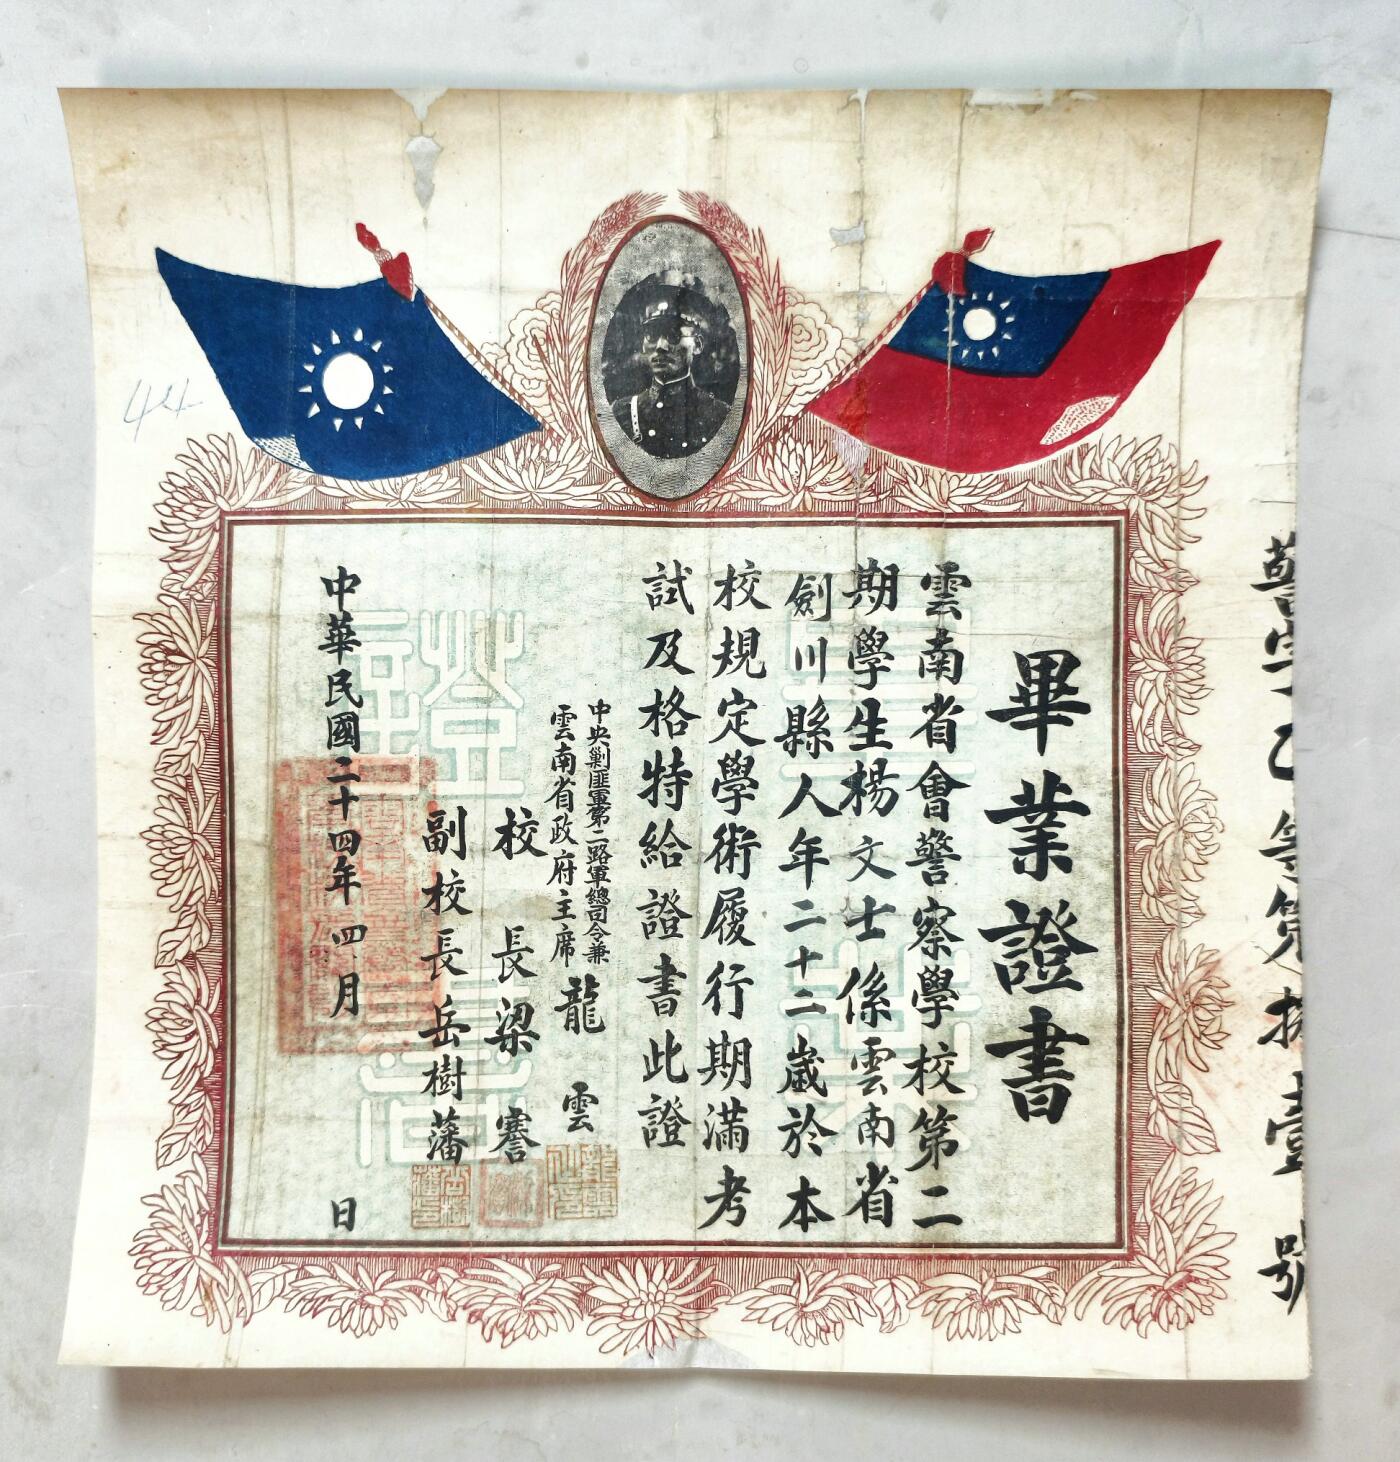 畢業證書
雲南省會警察學校第二
期學生楊文士係雲南省
劍川縣人年二十二歲於本
校規定學術履行期滿考
試及格特給證書此證
中央剿匪軍第二路軍總司令兼
雲南省政府主席龍雲
校長梁謇
副校長岳樹藩
中華民國二十四年四月日
警字乙等第拔壹號
44